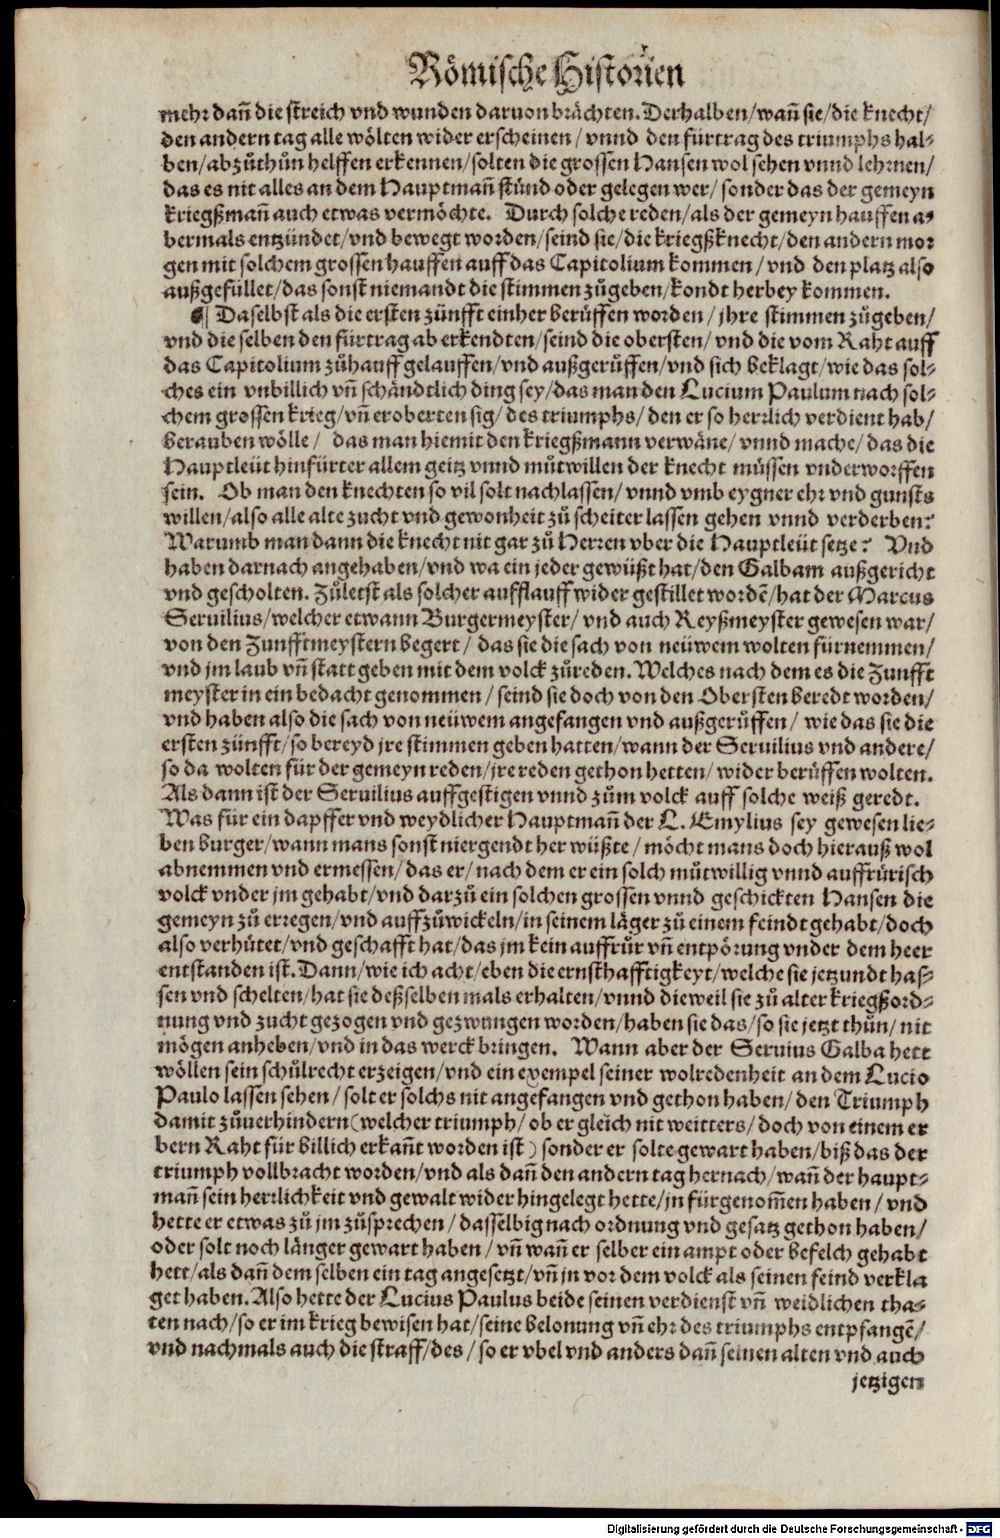 Römische Historien
mehr dañ die streich vnd wunden daruon brächten. Derhalben/ wañ sie/ die knecht/
den andern tag alle wölten wider erscheinen/ vnnd den fürtrag des triumphs hal-
ben/ abzůthůn helffen erkennen/ solten die grossen Hansen wol sehen vnnd lehrnen/
das es nit alles an dem Hauptmañ stünd oder gelegen wer/ sonder das der gemeyn
kriegßmañ auch etwas vermöchte. Durch solche reden/ als der gemeyn hauffen a-
bermals entzündet/ vnd bewegt worden/ seind sie/ die kriegßknecht/ den andern mor
gen mit solchem grossen hauffen auff das Capitolium kommen/ vnd den platz also
außgefüllet/ das sonst niemandt die stimmen zůgeben/ kondt herbey kommen.
¶ Daselbst als die ersten zünfft einher berůffen worden/ jhre stimmen zůgeben/
vnd die selben den fürtrag ab erkendten/ seind die obersten/ vnd die vom Raht auff
das Capitolium zůhauff gelauffen/ vnd außgerůffen/ vnd sich beklagt/ wie das sol-
ches ein vnbillich vñ schändtlich ding sey/ das man den Lucium Paulum nach sol-
chem grossen krieg/ vñ eroberten sig/ des triumphs/ den er so herrlich verdient hab/
berauben wölle/ das man hiemit den kriegßmann verwäne/ vnnd mache/ das die
Hauptleüt hinfürter allem geitz vnnd můtwillen der knecht müssen vnderworffen
sein. Ob man den knechten so vil solt nachlassen/ vnnd vmb eygner ehr vnd gunsts
willen/ also alle alte zucht vnd gewonheit zů scheiter lassen gehen vnnd verderben?
Warumb man dann die knecht nit gar zů Herren vber die Hauptleüt setze? Vnd
haben darnach angehaben/ vnd wa ein jeder gewüßt hat/ den Galbam außgericht
vnd gescholten. Zůletst als solcher aufflauff wider gestillet wordẽ/ hat der Marcus
Seruilius/ welcher etwann Burgermeyster/ vnd auch Reyßmeyster gewesen war/
von den Zunfftmeystern begert/ das sie die sach von neüwem wolten fürnemmen/
vnd jm laub vñ statt geben mit dem volck zůreden. Welches nach dem es die Zunfft
meyster in ein bedacht genommen/ seind sie doch von den Obersten beredt worden/
vnd haben also die sach von neüwem angefangen vnd außgerůffen/ wie das sie die
ersten zünfft/ so bereyd jre stimmen geben hatten/ wann der Seruilius vnd andere/
so da wolten für der gemeyn reden/ jre reden gethon hetten/ wider berůffen wolten.
Als dann ist der Seruilius auffgestigen vnnd zům volck auff solche weiß geredt.
Was für ein dapffer vnd weydlicher Hauptmañ der L. Emylius sey gewesen lie-
ben burger/ wann mans sonst niergendt her wüßte/ möcht mans doch hierauß wol
abnemmen vnd ermessen/ das er/ nach dem er ein solch můtwillig vnnd auffrürisch
volck vnder jm gehabt/ vnd darzů ein solchen grossen vnnd geschickten Hansen die
gemeyn zů erregen/ vnd auffzůwickeln/ in seinem läger zů einem feindt gehabt/ doch
also verhütet/ vnd geschafft hat/ das jm kein auffrůr vñ entpörung vnder dem heer
entstanden ist. Dann/ wie ich acht/ eben die ernsthafftigkeyt/ welche sie jetzundt has-
sen vnd schelten/ hat sie deßselben mals erhalten/ vnnd dieweil sie zů alter kriegßord-
nung vnd zucht gezogen vnd gezwungen worden/ haben sie das/ so sie jetzt thůn/ nit
mögen anheben/ vnd in das werck bringen. Wann aber der Seruius Galba hett
wöllen sein schůlrecht erzeigen/ vnd ein exempel seiner wolredenheit an dem Lucio
Paulo lassen sehen/ solt er solchs nit angefangen vnd gethon haben/ den Triumph
damit zůuerhindern (welcher triumph/ ob er gleich nit weitters/ doch von einem er
bern Raht für billich erkañt worden ist) sonder er solte gewart haben/ biß das der
triumph vollbracht worden/ vnd als dañ den andern tag hernach/ wañ der haupt-
mañ sein herrlichkeit vnd gewalt wider hingelegt hette/ jn fürgenom̃en haben/ vnd
hette er etwas zů jm zůsprechen/ dasselbig nach ordnung vnd gesatz gethon haben/
oder solt noch länger gewart haben/ vñ wañ er selber ein ampt oder befelch gehabt
hett/ als dañ dem selben ein tag angesetzt/ vñ jn vor dem volck als seinen feind verkla
get haben. Also hette der Lucius Paulus beide seinen verdienst vñ weidlichen tha-
ten nach/ so er im krieg bewisen hat/ seine belonung vñ ehr des triumphs entpfangẽ/
vnd nachmals auch die straff/ des/ so er vbel vnd anders dañ seinen alten vnd auch
jetzigen
Digitalisierung gefördert durch die Deutsche Forschungsgemeinschaft - DFG